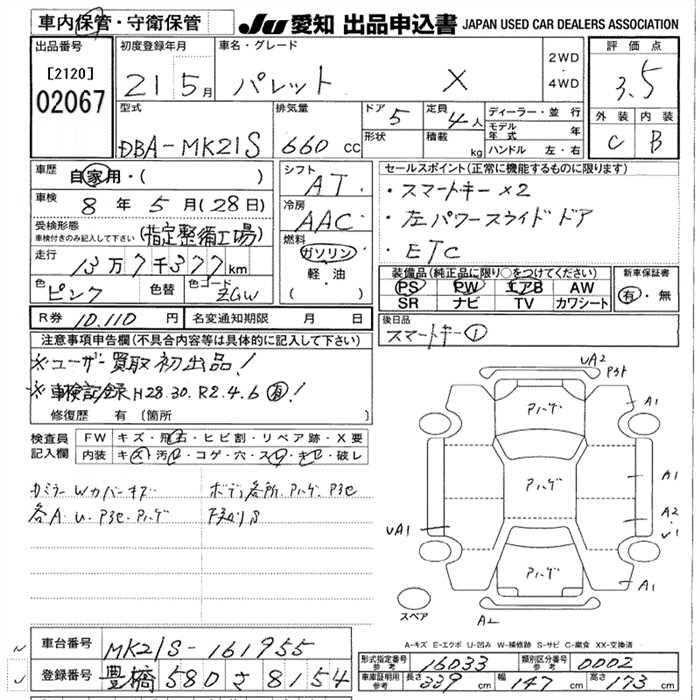 車内保管・守衛保管 JU 愛知 出品申込書 JAPAN USED CAR DEALERS ASSOCIATION
出品番号 初度登録年月 車名・グレード 2WD・4WD 評価点
[2120] 21 5月 パレット X 3.5
02067
型式 排気量 ドア 5 定員 4人 ディーラー・並行 外装 内装
DBA-MK21S 660 cc 形状 積載 kg モデル年式 年 C B
ハンドル 左・右
車歴 自家用・( ) シフト AT セールスポイント(正常に機能するものに限ります)
車検 8年 5月(28日) 冷房 AAC ・スマートキー×2
受検形態 ・左パワースライドドア
車検付きのみ記入して下さい (指定整備工場) 燃料 ガソリン ・ETC
走行 13万7千377km 軽・油 装備品(純正品に限り○をつけてください) 新車保証書
色 ピンク 色替 色コード ZGW ( ) PS PW エアB AW 有・無
SR ナビ TV カワシート
R券 10,110 円 名変通知期限 月 日 後日品
スマートキー①
注意事項申告欄(不具合内容等は具体的に記入して下さい)
※ユーザー買取初出品!
※車検記録H28.30.R2.4.6(有)!
修復歴 有 (箇所
検査員記入欄 FW キズ・飛石・ヒビ割・リペア跡・X要
内装 キズ・汚レ・コゲ・穴・スレ・キレ・破レ
Wカバーキズ ボディ各所
各A.U.
UA2
A1
A1
A2
UA1
A1
A2
スペア
A-キズ E-エクボ U-凹み W-補修跡 S-サビ C-腐食 XX-交換済
車台番号 MK21S-161955
型式指定番号 参考 16033 類別区分番号 参考 0002
登録番号 豊橋 580 さ 8154
車庫証明用 参考 長さ 339 cm 幅 147 cm 高さ 173 cm